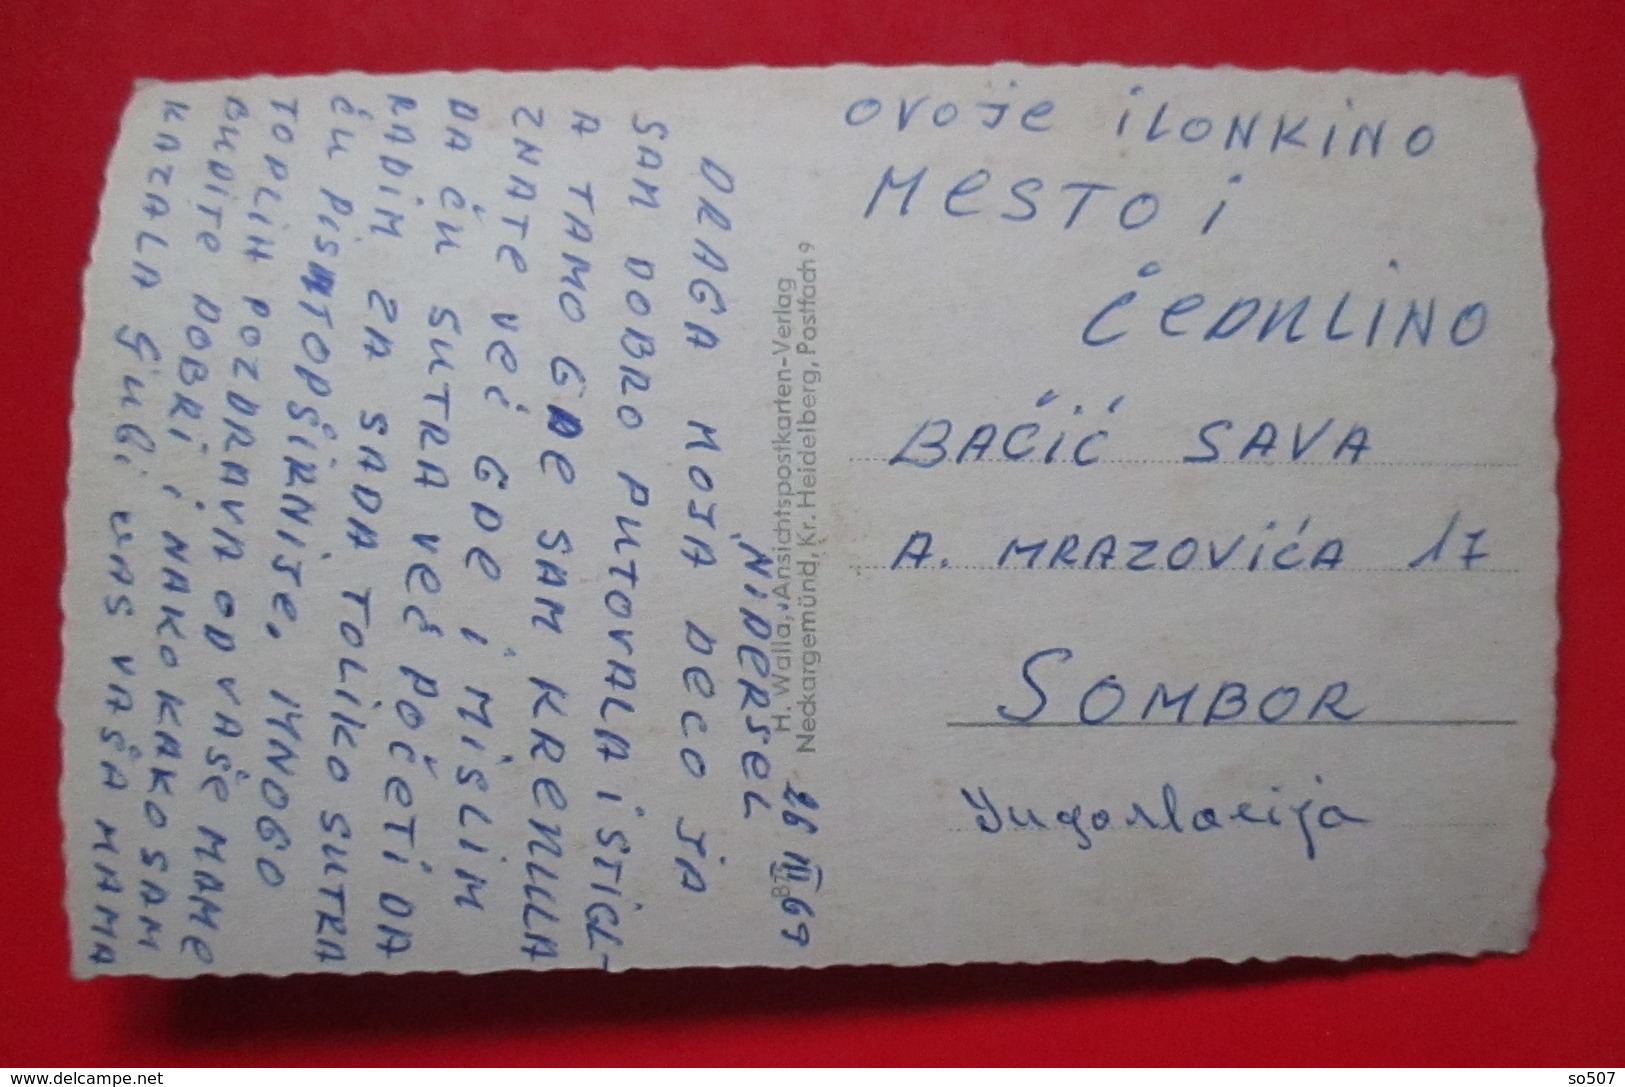 OVOJE ILONKINO
MESTO I
ČEDALINO
BAČIĆ SAVA
A. MRAZOVIĆA 17
SOMBOR
Yugoslavija
H. Walla, Ansichtspostkarten-Verlag
Neckargemünd, Kr. Heidelberg, Postfach 9
NIDERSEL 26 III 69
DRAGA MOJA DECO JA
SAM DOBRO PUTOVALA I STIGL-
A TAMO GDE SAM KRENULA
ZNATE VEĆ GDE I MISLIM
DA ĆU SUTRA VEĆ POČETI DA
RADIM ZA SADA TOLIKO SUTRA
ĆU PISATOPŠIRNIJE. MNOGO
TOPLIH POZDRAVA OD VAŠE MAME
BUDITE DOBRI I NAKO KAKO SAM
KAZALA ljubi VAS VAŠA MAMA
www.delcampe.net
so507